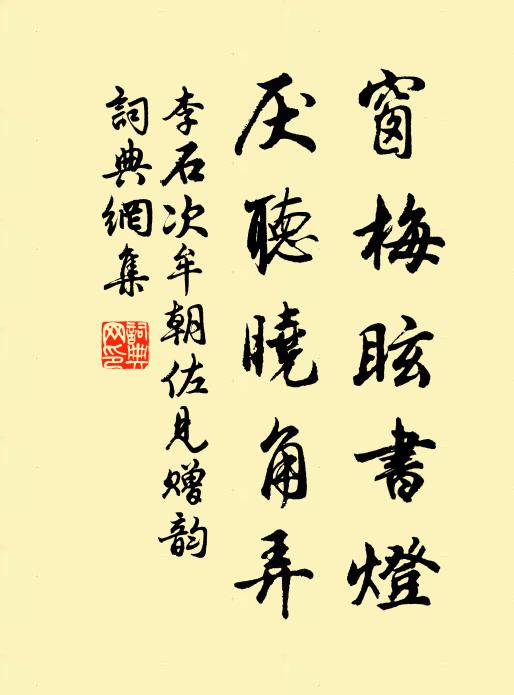 窗梅眩書燈
厌聽曉角弄
李石次牟朝佐見赠韵
詞典網集
詞典
网印